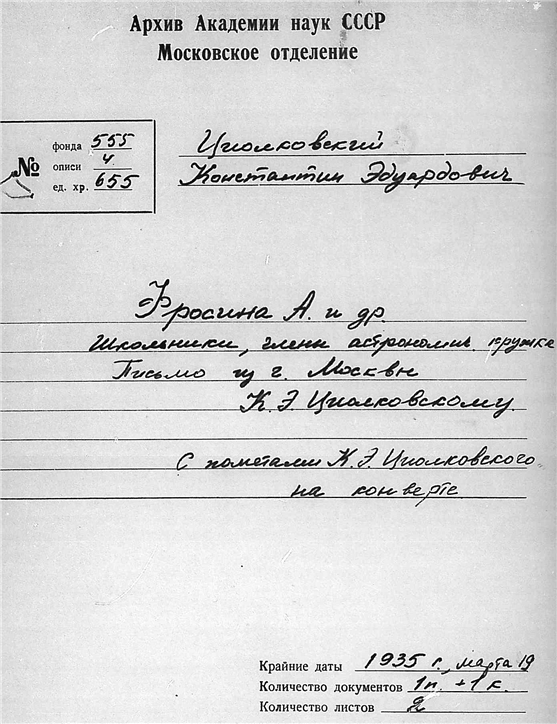 Архив Академии наук СССР
Московское отделение
№
фонда 555
описи 4
ед. хр. 655
Циолковский
Константин Эдуардович
Фросина А. и др.
Школьники, члены астрономич. кружка
Письмо из г. Москвы
К. Э. Циолковскому.
С пометами К. Э. Циолковского
на конверте
Крайние даты 1935 г., марта 19
Количество документов 1п. + 1к.
Количество листов 2